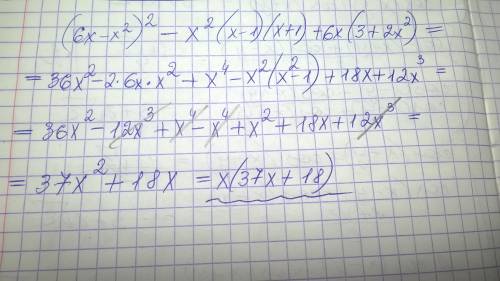 (6x-x²)² - x²(x-1)(x+1)+6x(3+2x²) =
= 36x²-2·6x·x²+x⁴-x²(x²-1)+18x+12x³ =
= 36x²-12x³+x⁴-x⁴+x²+18x+12x³ =
= 37x²+18x = x(37x+18)